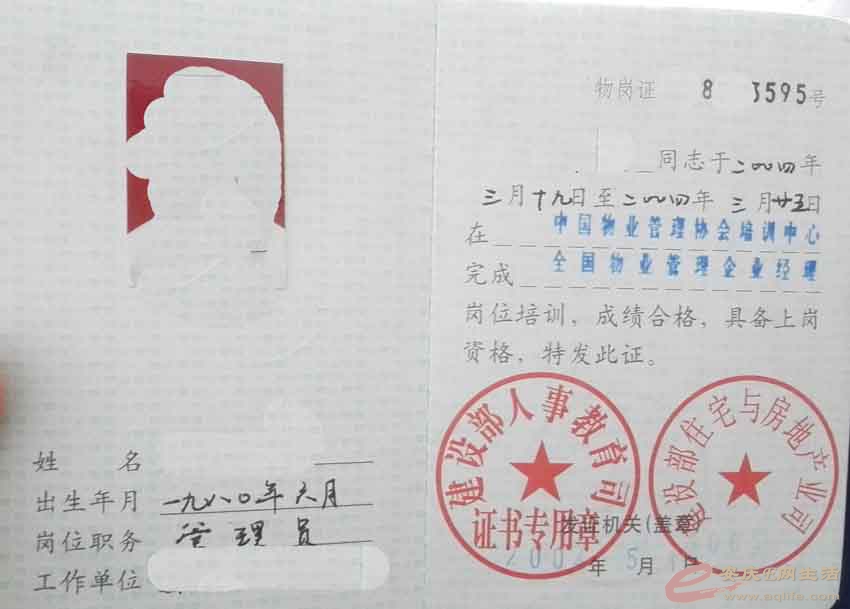 姓 名
出生年月 一九八〇年六月
岗位职务 管理员
工作单位
物岗证 8 3595号
同志于二〇〇四年
三月十九日至二〇〇四年 三月廿五日
在 中国物业管理协会培训中心
完成 全国物业管理企业经理
岗位培训，成绩合格，具备上岗
资格，特发此证。
建设部人事教育司
证书专用章
建设部住宅与房地产业司
发证机关(盖章)
年 5 月 日
安庆E网生活
www.aqlife.com